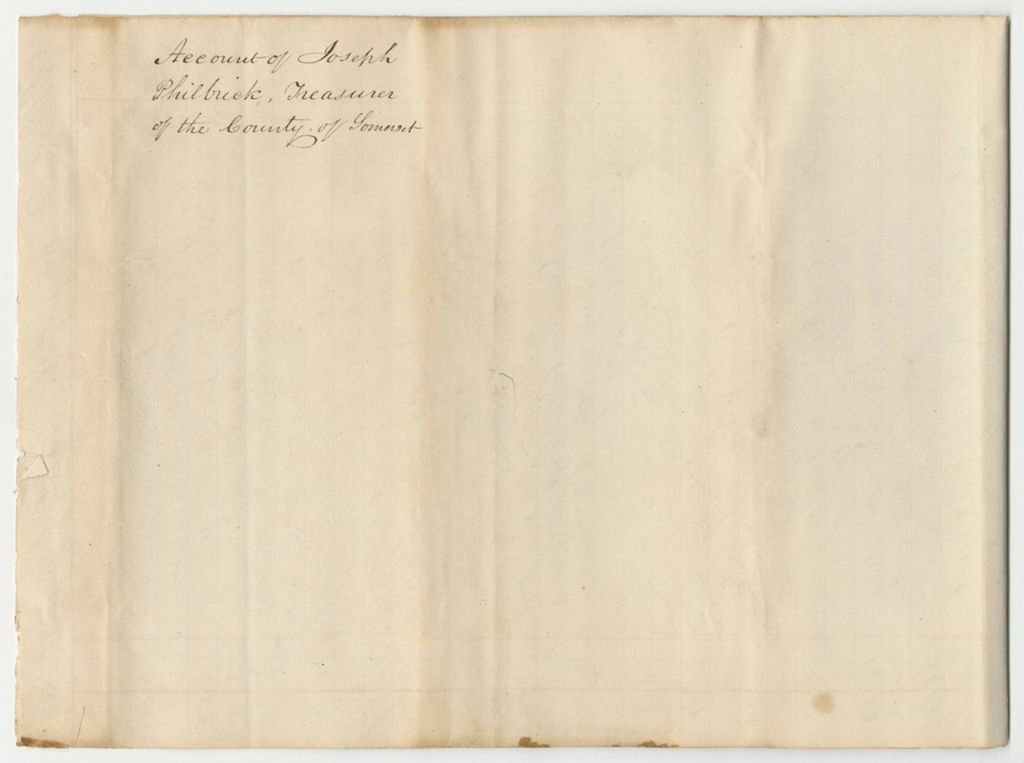 Account of Joseph
Philbrick, Treasurer
of the County of Somerset